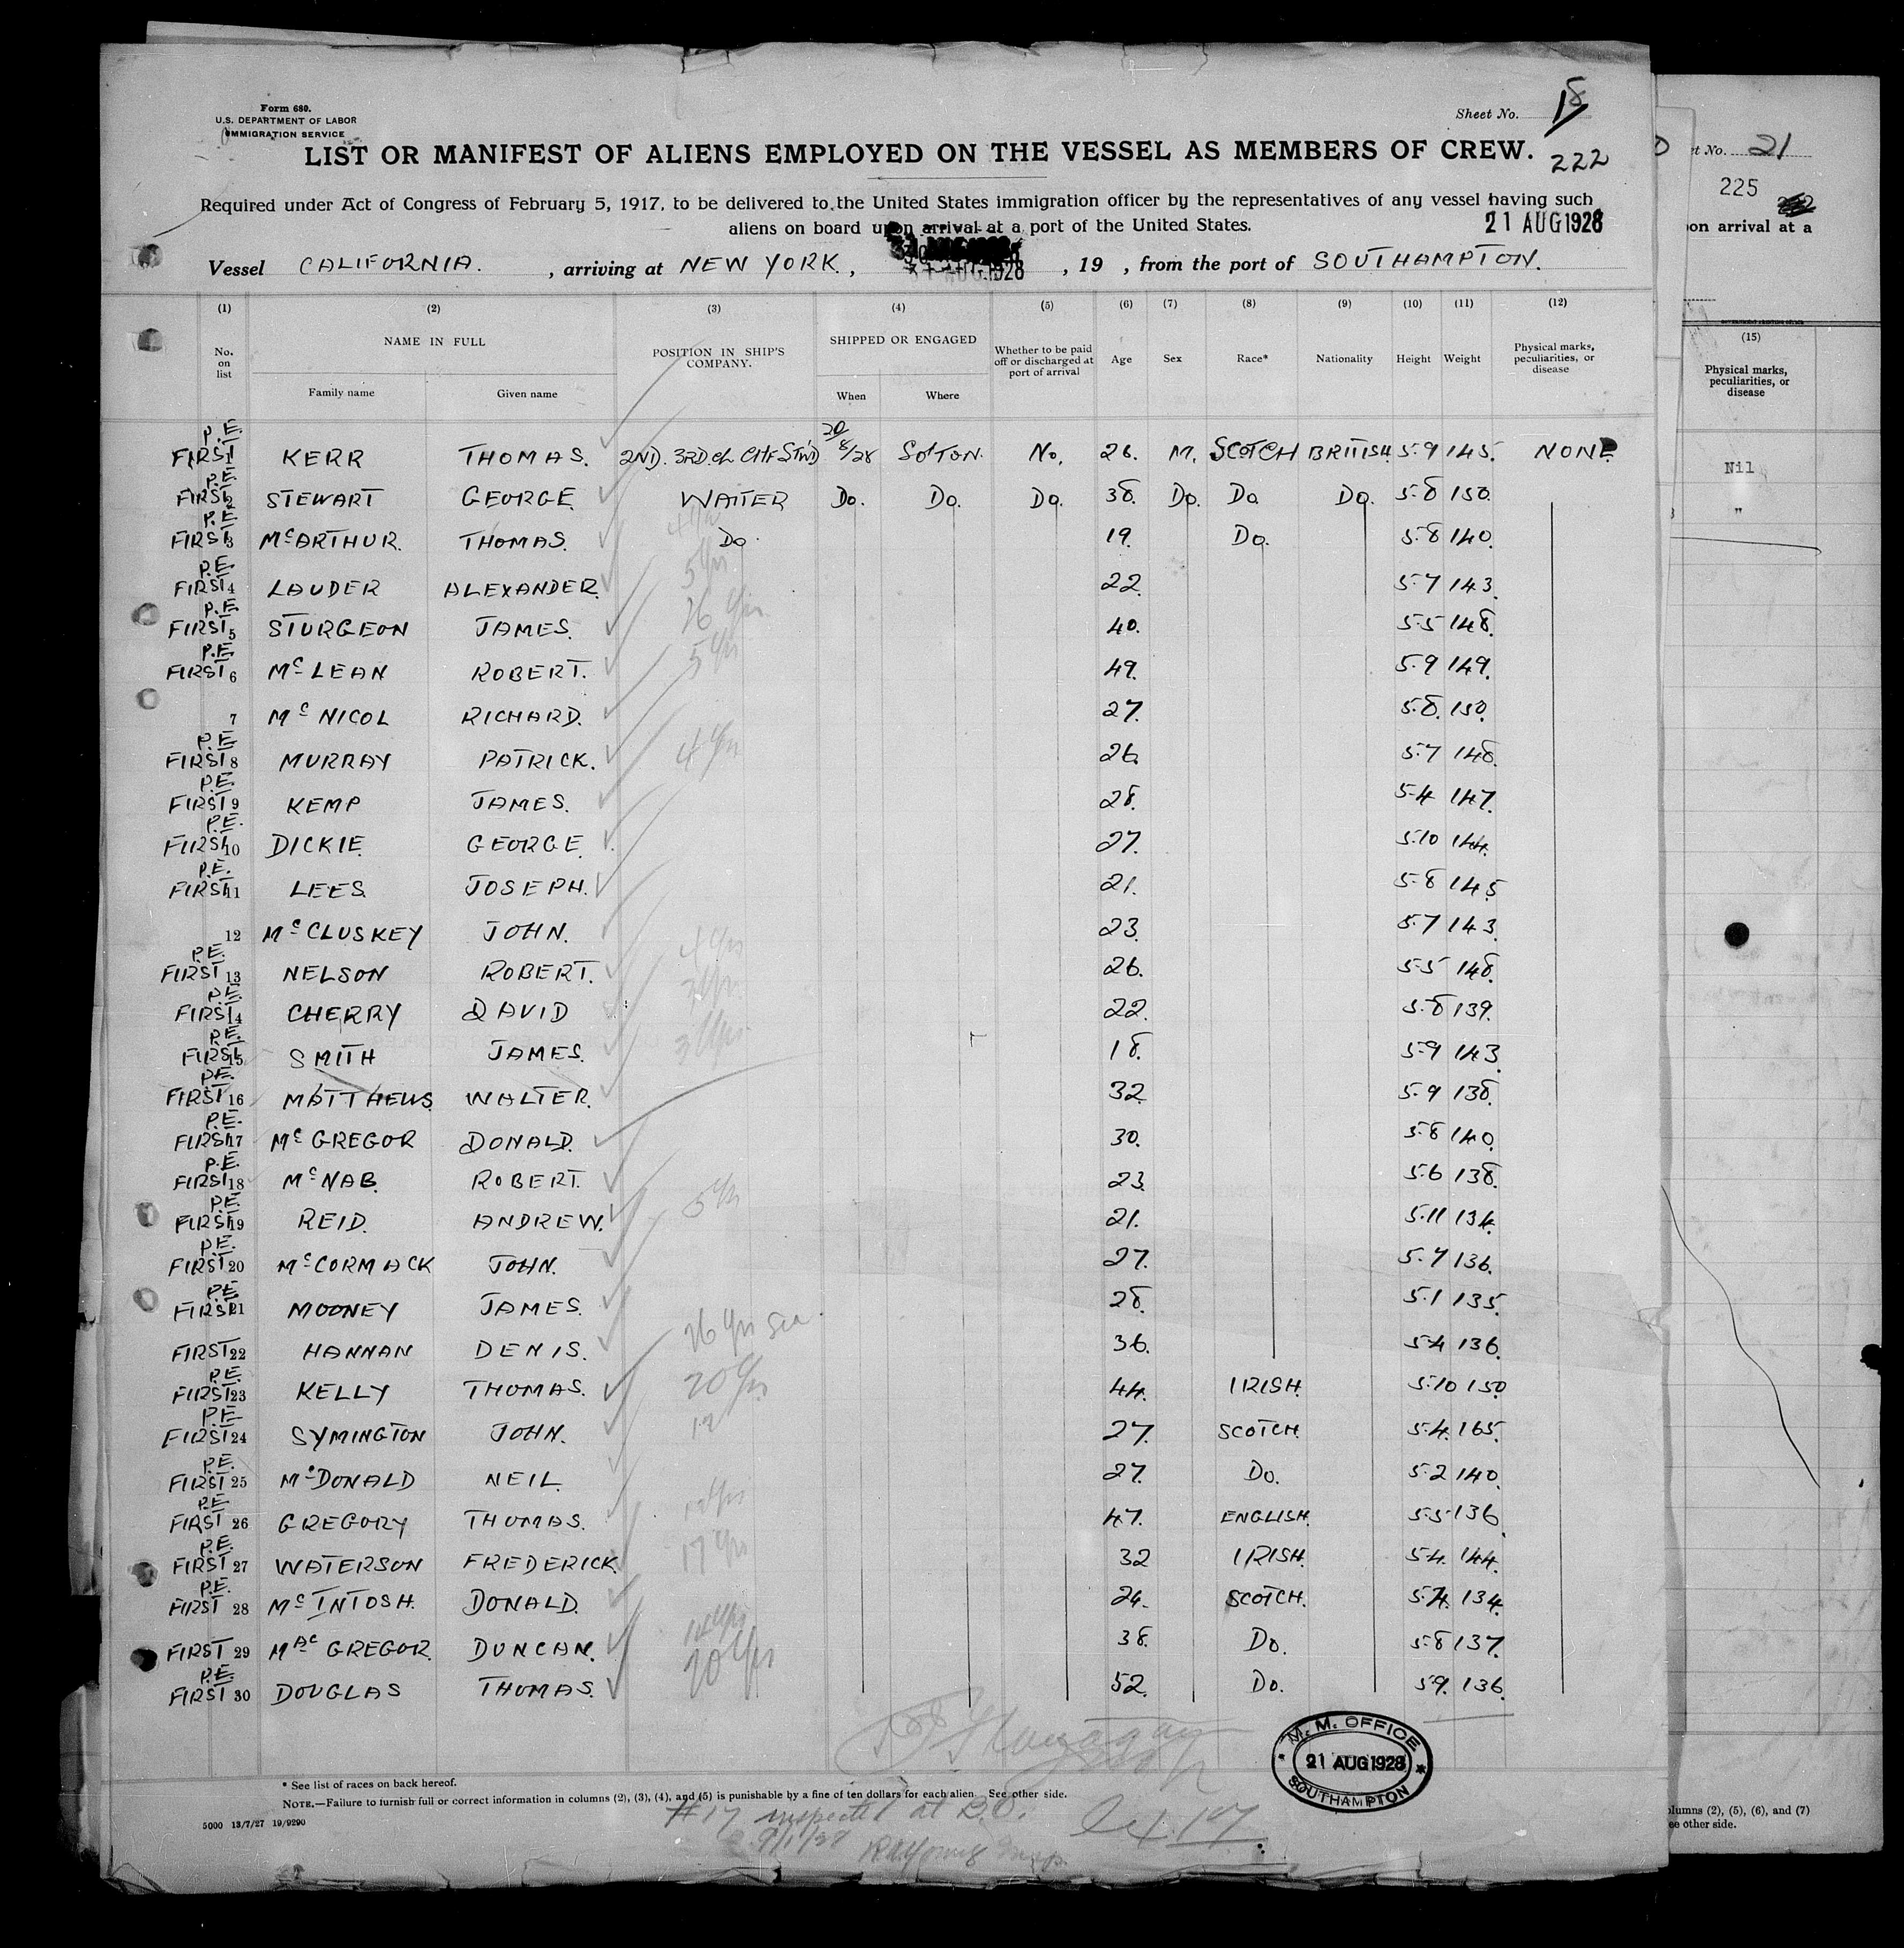 Form 680.
U.S. DEPARTMENT OF LABOR
IMMIGRATION SERVICE
Sheet No. 18
LIST OR MANIFEST OF ALIENS EMPLOYED ON THE VESSEL AS MEMBERS OF CREW.
222
Required under Act of Congress of February 5, 1917, to be delivered to the United States immigration officer by the representatives of any vessel having such
aliens on board upon arrival at a port of the United States.
21 AUG 1928
Vessel CALIFORNIA. , arriving at NEW YORK. , AUG. 1928 , 19 , from the port of SOUTHAMPTON.
(1) (2) (3) (4) (5) (6) (7) (8) (9) (10) (11) (12)
No. on list NAME IN FULL Family name Given name POSITION IN SHIP'S COMPANY. SHIPPED OR ENGAGED When Where Whether to be paid off or discharged at port of arrival Age Sex Race* Nationality Height Weight Physical marks, peculiarities, or disease
P.E. FIRST 1 KERR THOMAS. 2ND. 3RD. CL CHF STWD 20/8/28 SO'TON. No. 26. M. SCOTCH BRITISH. 5-9 145. NONE
P.E. FIRST 2 STEWART GEORGE. WAITER Do. Do. Do. 38. Do. Do Do. 5-8 150.
P.E. FIRST 3 McARTHUR. THOMAS. Do. 19. Do. 5-8 140.
P.E. FIRST 4 LAUDER ALEXANDER. 5 yrs 22. 5-7 143.
P.E. FIRST 5 STURGEON JAMES. 26 yrs 40. 5-5 148.
P.E. FIRST 6 McLEAN ROBERT. 5 yrs 49. 5-9 149.
7 McNICOL RICHARD. 27. 5-8. 150.
P.E. FIRST 8 MURRAY PATRICK. 4 yrs 26. 5-7 148.
P.E. FIRST 9 KEMP JAMES. 28. 5-4 147.
P.E. FIRST 10 DICKIE. GEORGE. 27. 5-10 144.
P.E. FIRST 11 LEES JOSEPH. 21. 5-8 145
12 McCLUSKEY JOHN. 23. 5-7 143.
P.E. FIRST 13 NELSON ROBERT. 4 yrs 26. 5-5 148.
P.E. FIRST 14 CHERRY DAVID 22. 5-8 139.
P.E. FIRST 15 SMITH JAMES. 18. 5-9 143.
P.E. FIRST 16 MATTHEWS. WALTER. 32 5-9 138.
P.E. FIRST 17 McGREGOR DONALD. 30. 5-8 140.
P.E. FIRST 18 McNAB. ROBERT. 23. 5-6 138.
P.E. FIRST 19 REID. ANDREW. 5 yrs 21. 5-11 134.
P.E. FIRST 20 McCORMACK JOHN. 27. 5-7 136.
P.E. FIRST 21 MOONEY JAMES. 28. 5-1 135.
FIRST 22 HANNAN DENIS. 26 yrs sea 36. 5-4 136.
P.E. FIRST 23 KELLY THOMAS. 20 yrs 44. IRISH. 5-10 150
P.E. FIRST 24 SYMINGTON JOHN. 27. SCOTCH. 5-4. 165.
P.E. FIRST 25 McDONALD NEIL. 27. Do. 5-2 140.
P.E. FIRST 26 GREGORY THOMAS. 47. ENGLISH. 5-5 136.
P.E. FIRST 27 WATERSON FREDERICK. 17 yrs 32 IRISH. 5-4. 144.
P.E. FIRST 28 McINTOSH. DONALD. 24. SCOTCH. 5-4. 134.
FIRST 29 MacGREGOR. DUNCAN. 14 yrs 38. Do. 5-8 137.
P.E. FIRST 30 DOUGLAS THOMAS. 20 yrs 52. Do. 5-9. 136.
M. M. OFFICE
21 AUG 1928
SOUTHAMPTON
* See list of races on back hereof.
NOTE.—Failure to furnish full or correct information in columns (2), (3), (4), and (5) is punishable by a fine of ten dollars for each alien. See other side.
5000 13/7/27 19/9290
#17 inspected at B.O.
t No. 21
225
on arrival at a
(15)
Physical marks, peculiarities, or disease
Nil
"
olumns (2), (5), (6), and (7)
ee other side.